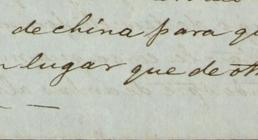 de china para q
lugar que de ot